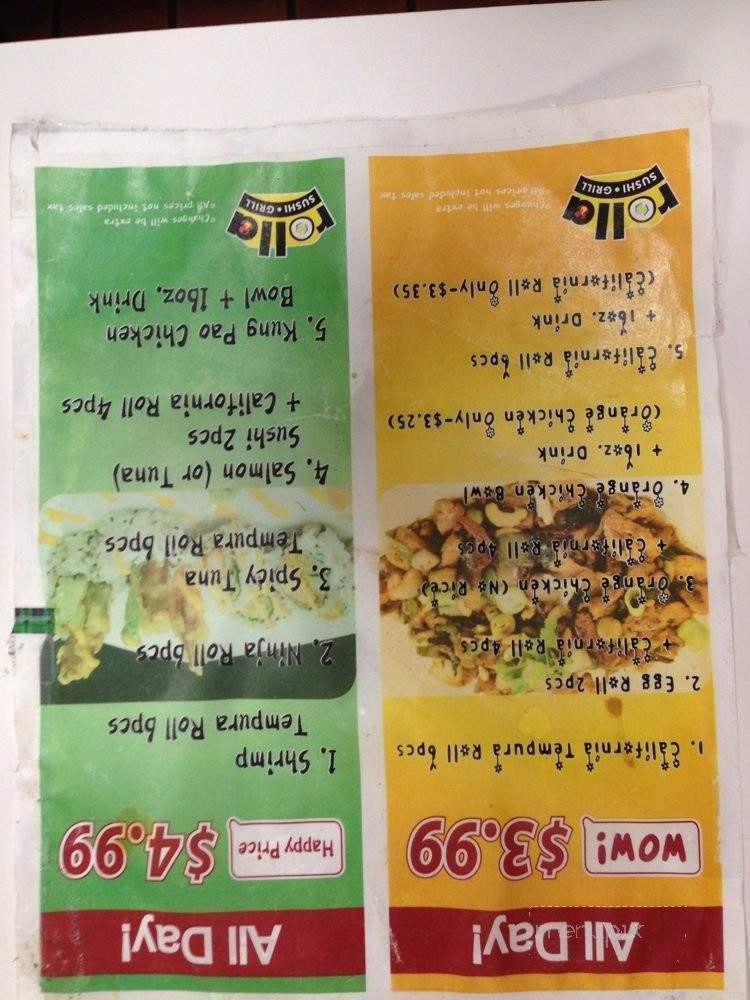 All Day!
WOW!
$3.99
1. California Tempura Roll 6pcs
2. Egg Roll 2pcs
+ California Roll 4pcs
3. Orange Chicken (No Rice)
+ California Roll 4pcs
4. Orange Chicken Bowl
+ 16oz. Drink
(Orange Chicken Only-$3.25)
5. California Roll 6pcs
+ 16oz. Drink
(California Roll Only-$3.35)
rolla
SUSHI • GRILL
*Changes will be extra
*All prices not included sales tax
All Day!
Happy Price
$4.99
1. Shrimp
Tempura Roll 6pcs
2. Ninja Roll 6pcs
3. Spicy Tuna
Tempura Roll 6pcs
4. Salmon (or Tuna)
Sushi 2pcs
+ California Roll 4pcs
5. Kung Pao Chicken
Bowl + 16oz. Drink
rolla
SUSHI • GRILL
*Changes will be extra
*All prices not included sales tax
menupix